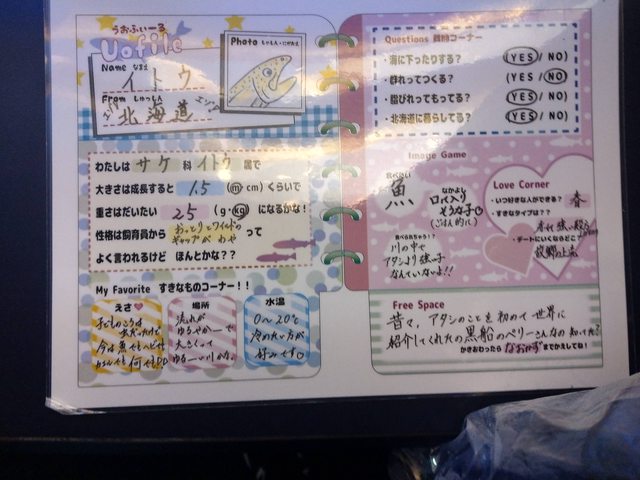 うおふぃーる
Uofile
Name なまえ
イトウ
From しゅっしん
北海道
Photo しゃしん・にがおえ
わたしは サケ 科 イトウ 属で
大きさは成長すると 1.5 (m cm) くらいで
重さはだいたい 25 (g・kg) になるかな!
性格は飼育員から おっとりとワイルドの ギャップが わや って
よく言われるけど ほんとかな??
My Favorite すきなものコーナー!!
えさ♥
子どものころは
今は魚でもヘビでも
何でも
場所
流れが
ゆるやか〜で
大きくって
ゆる〜い川かな。
水温
0〜20℃
冷めたい方が
好みです
Questions 質問コーナー
・海に下ったりする? (YES / NO)
・群れってつくる? (YES / NO)
・歯びれってもってる? (YES / NO)
・北海道に暮らしてる? (YES / NO)
Image Game
食べたい
魚
なかよし
口に入り
そうな子
(ごはん的に)
食べられちゃう!?
川の中で
アタシより強い子
なんていないよ!!
Love Corner
・いつ好きな人ができる? 春
・すきなタイプは??
・デートにいくならどこ?
故郷の上流
Free Space
昔々、アタシのことを初めて世界に
紹介してくれたの黒船のペリーさんなの知ってた?
かきおわったら なおかず までかえしてね!